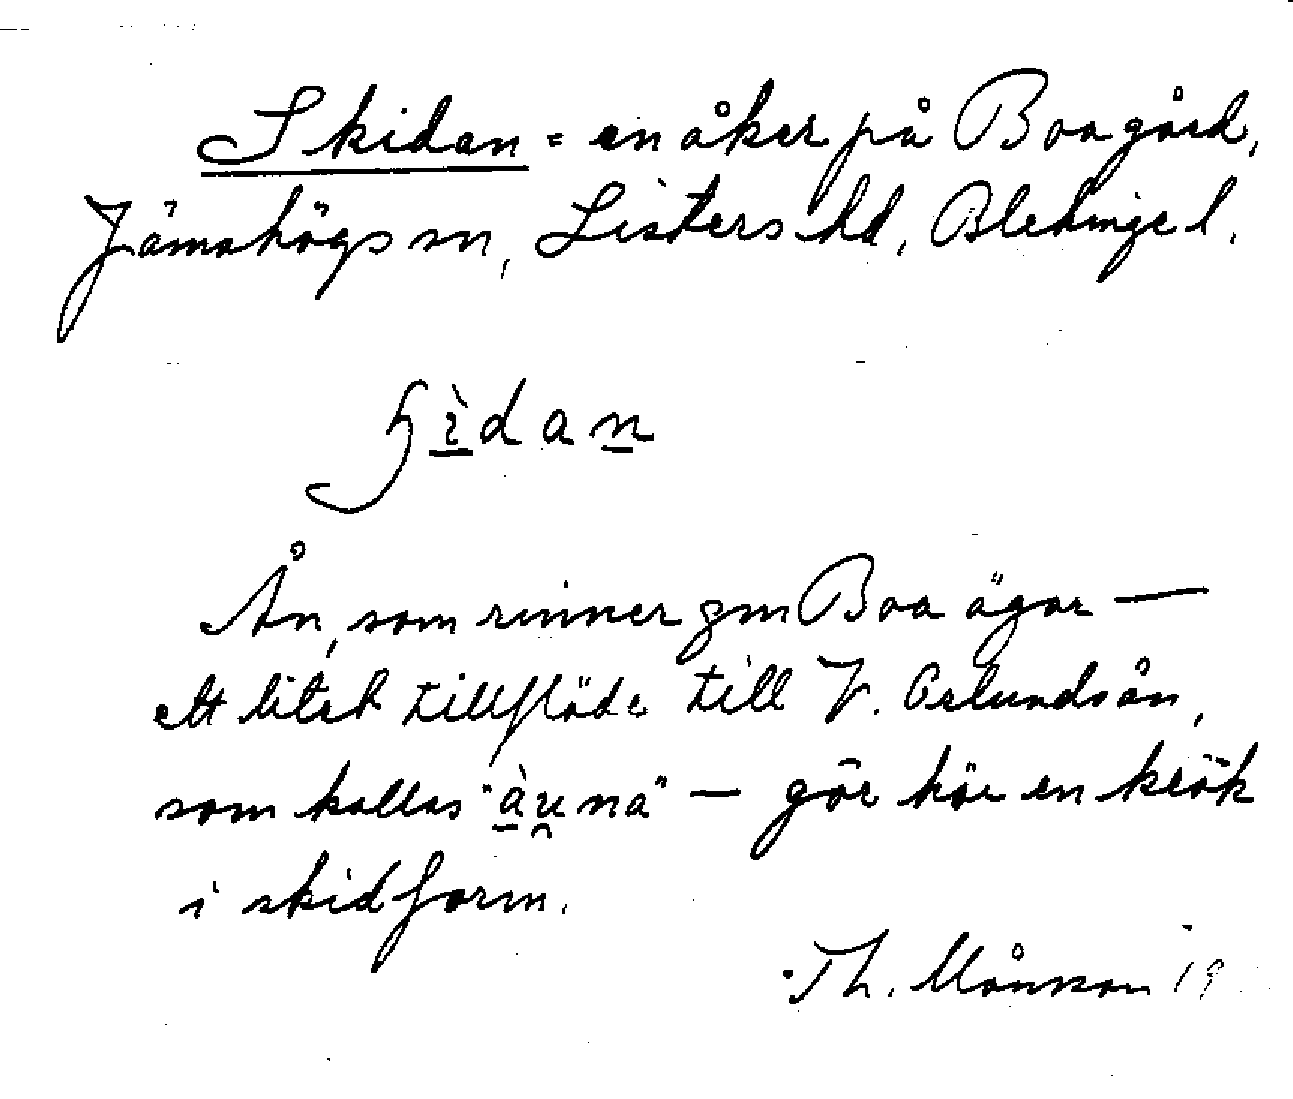 Skidan = en åker på Boa gård,
Jämshögs sn, Listers hd, Blekinge l.
ɧìdan
Ån, som rinner gm Boa ägor —
ett litet tillflöde till V. Orlundsån,
som kallas "àu̯na" — gör här en krök
i skidform.
Th. Månsson 19